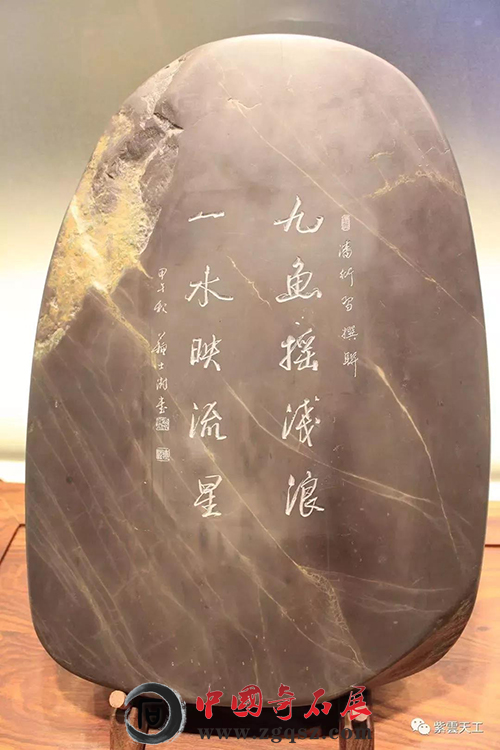 潘衍习撰联
九鱼摇浅浪
一水映流星
甲午秋
中國奇石展
www.zgqsz.com
紫雲天工